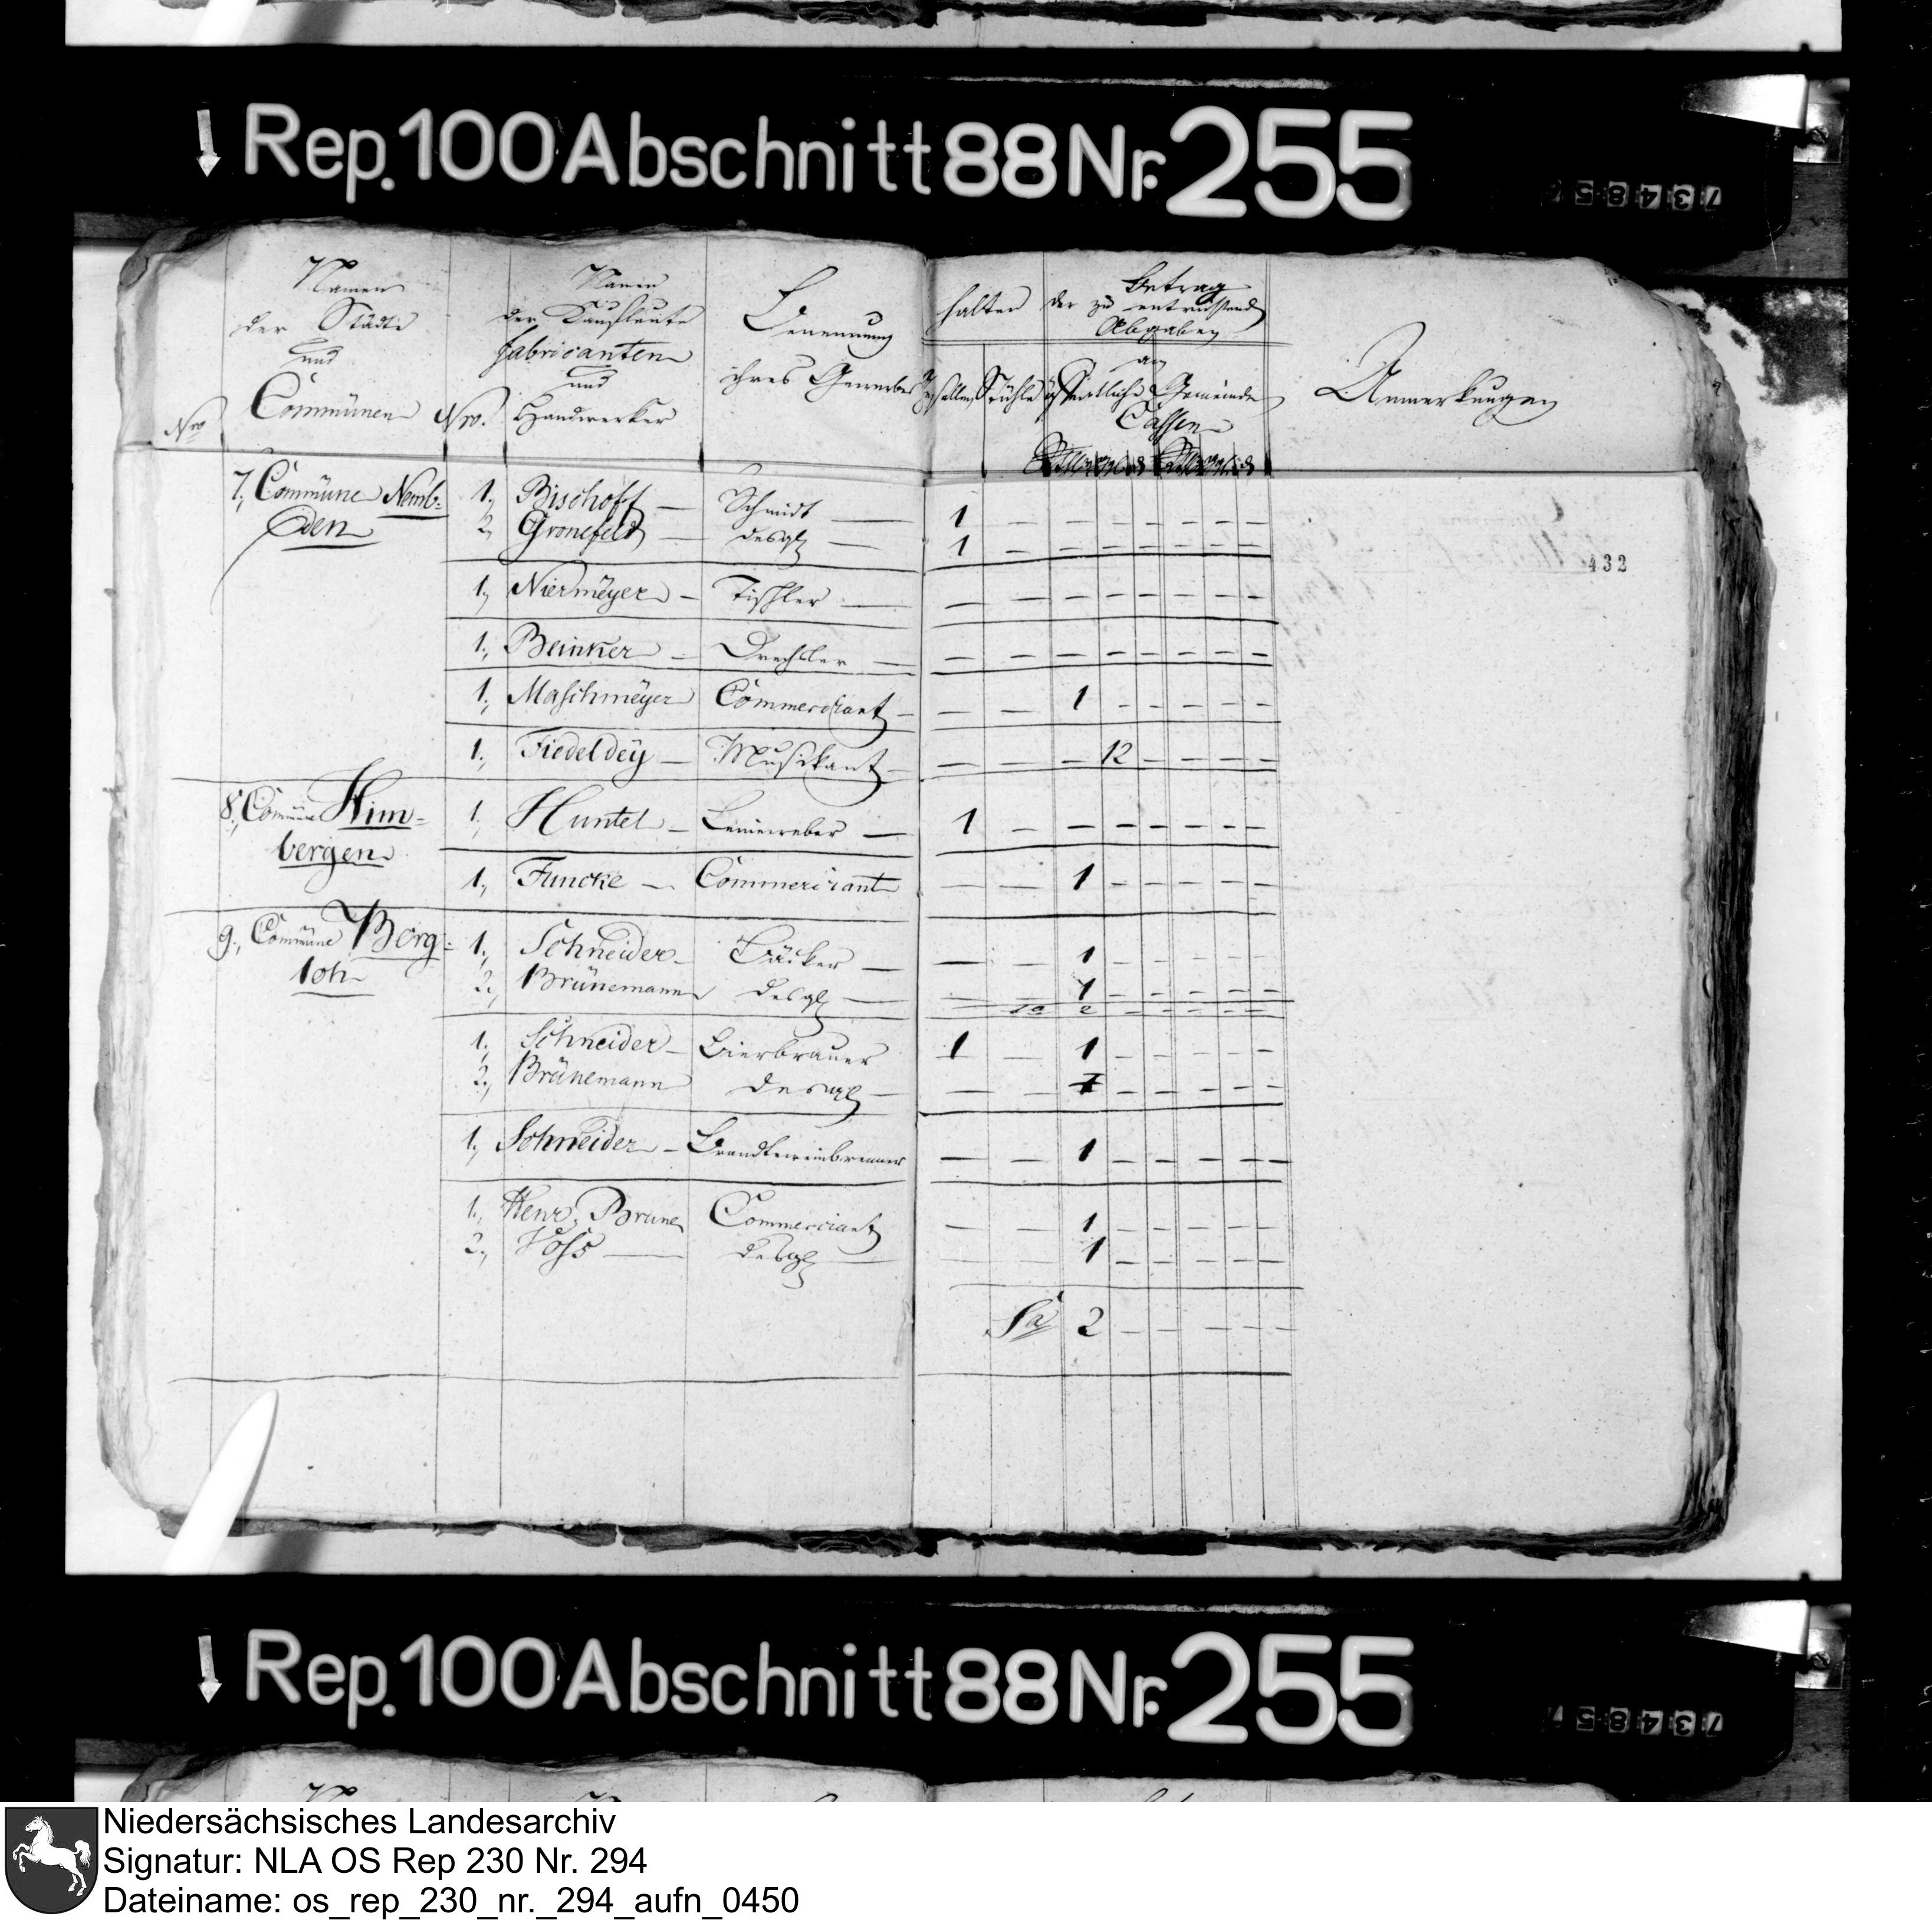 Rep. 100 Abschnitt 88 Nr. 255
Namen der Städte und Communen
Nro
Nro. Namen der Kaufleute fabricanten und Handwerker
Benennung ihres Gewerbes
halten
Gesellen Stühle
Betrag der zu entrichtend Abgaben
an
öffentliche Gemeinde
Cassen
Anmerkungen
7., Commüne Nemb= 1., Bischoff — Schmidt — 1 – – – – – – –
den 2., Gronefeld — desgl — 1 – – – – – – –
432
1., Niermeyer – Tischler — – – – – – – – –
1., Beinker – Drechsler — – – – – – – – –
1., Maschmeyer Commerciant – – – 1 – – – – –
1., Fiedeldey – Musikant – – – – 12 – – – –
8., Commüne Him= 1., Huntel – Leineweber — 1 – – – – – – –
bergen
1., Funcke — Commerciant – – 1 – – – – –
9., Commüne Borg= 1., Schneider – Bäcker — – – 1 – – – – –
loh 2., Brünemann desgl — – – 1 – – – – –
2 – – – – –
1., Schneider – Bierbrauer 1 – 1 – – – – –
2., Brünemann desgl – – – 1 – – – – –
1., Schneider – Brandteweinbrenner – – 1 – – – – –
1., Henr. Brune Commerciant – – 1 – – – – –
2., Voss — desgl — – – 1 – – – – –
Sa 2 – – – – –
Rep. 100 Abschnitt 88 Nr. 255
Niedersächsisches Landesarchiv
Signatur: NLA OS Rep 230 Nr. 294
Dateiname: os_rep_230_nr._294_aufn_0450